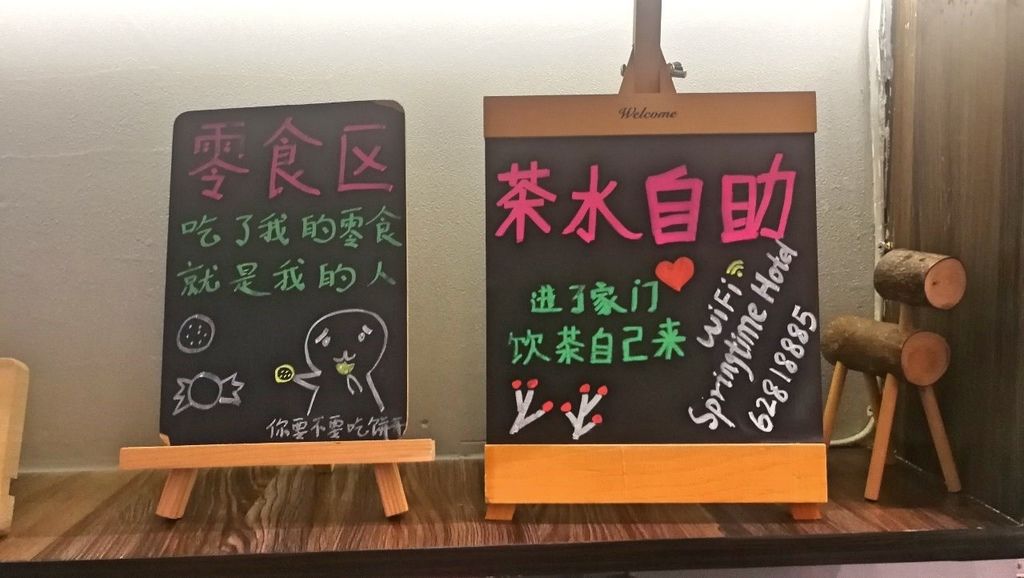 零食区
吃了我的零食
就是我的人
你要不要吃饼干
Welcome
茶水自助
进了家门
饮茶自己来
WiFi
Springtime Hotel
62818885